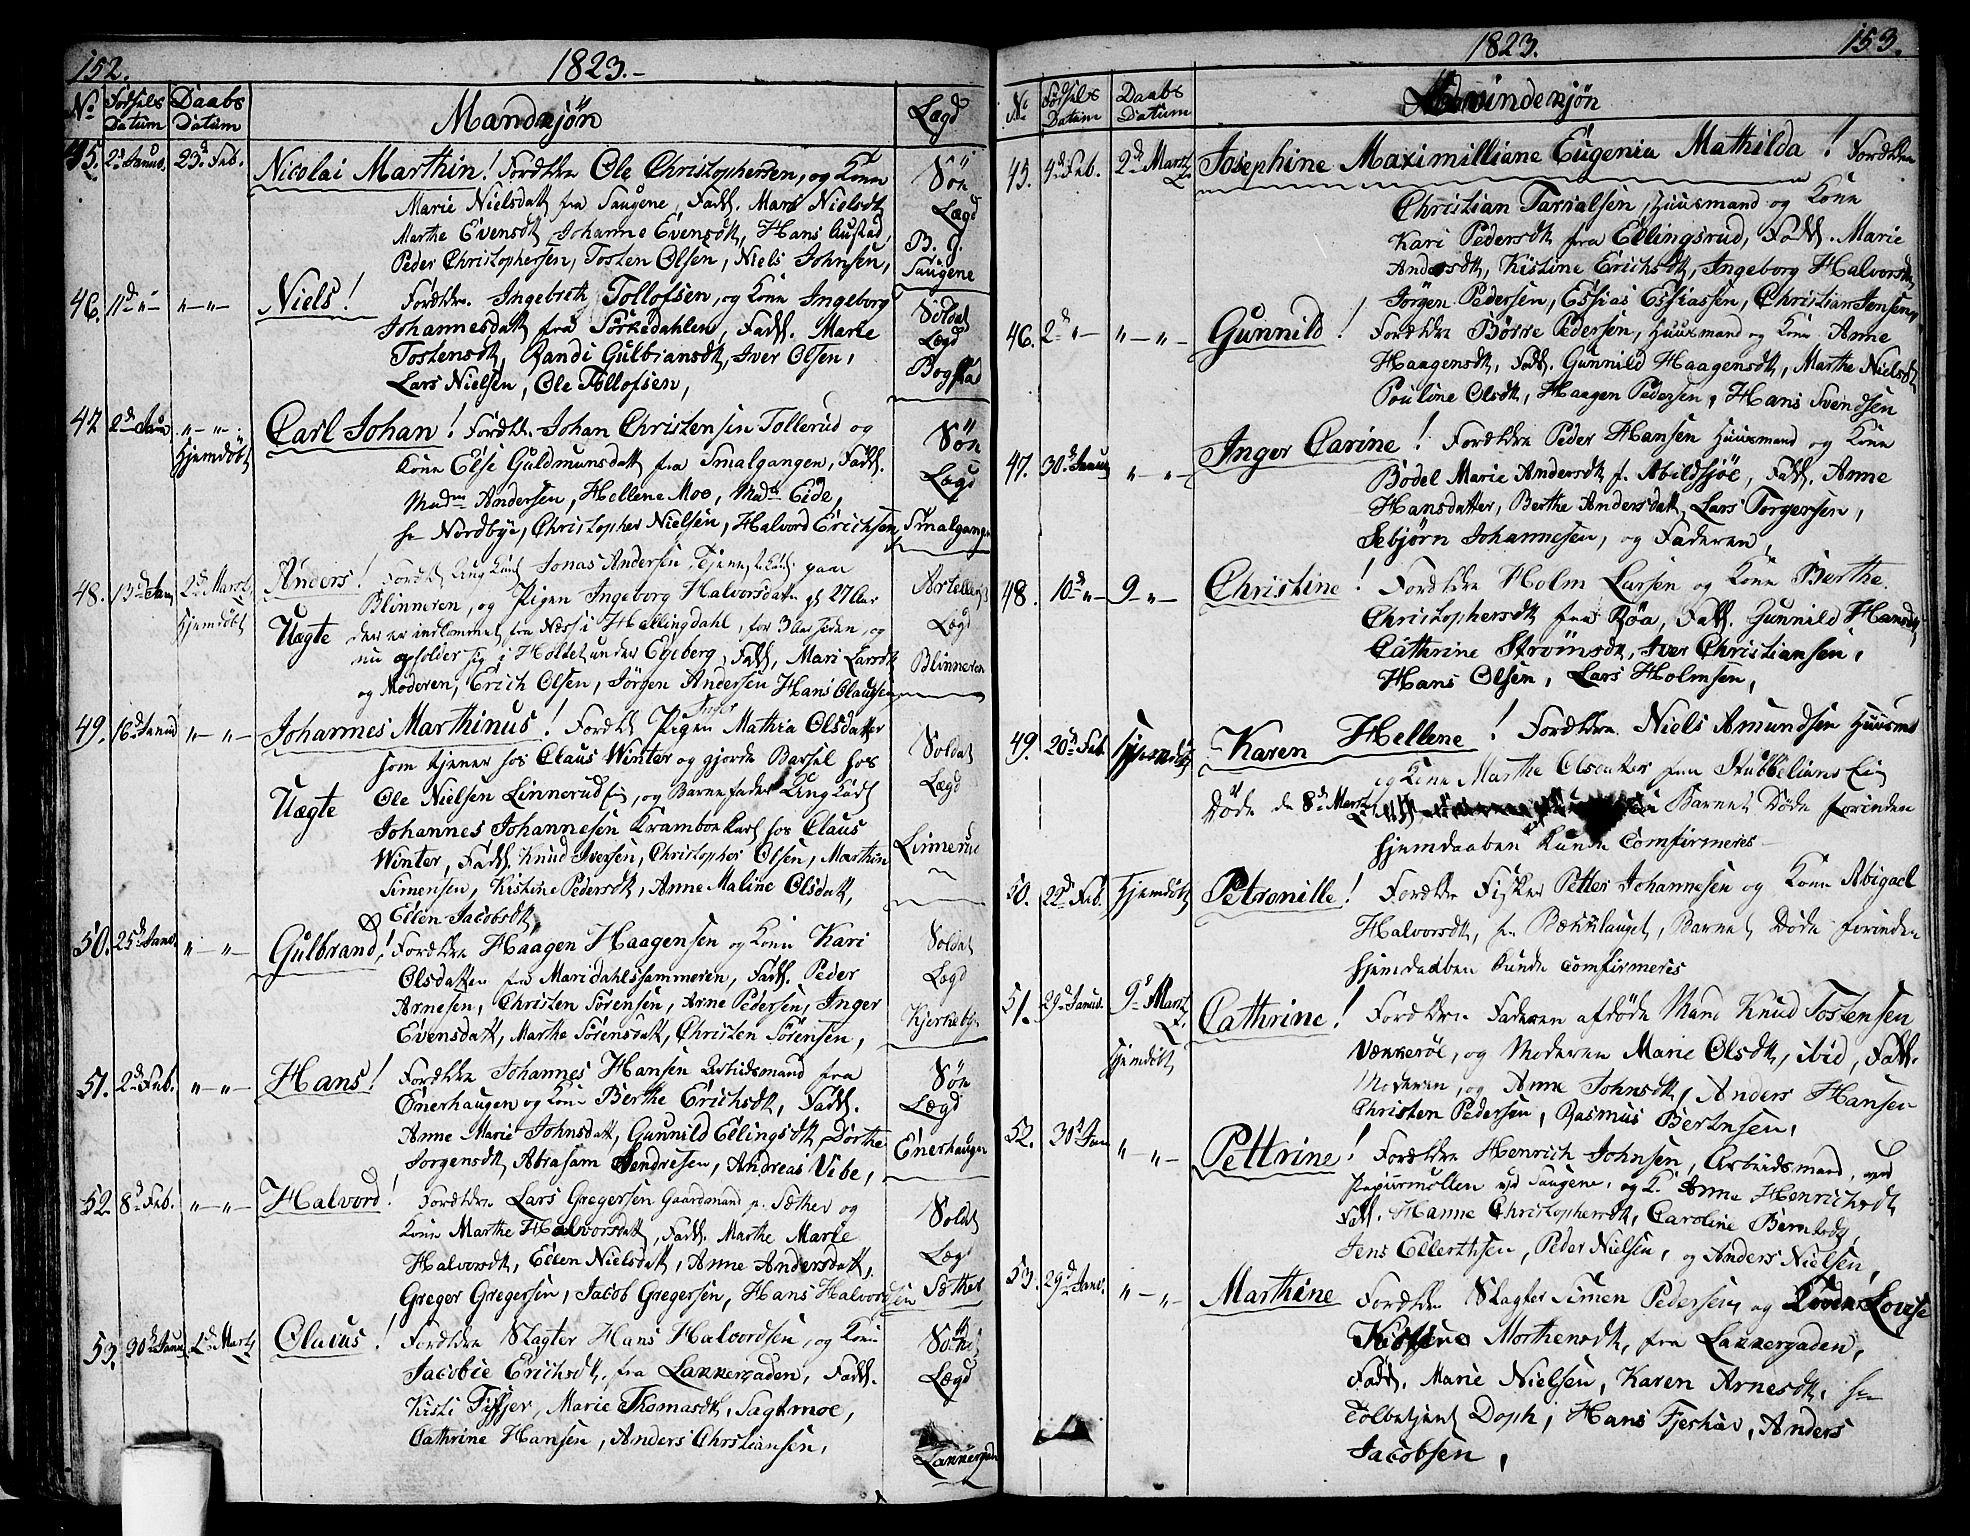 152.
1823.-
No Fødsels Datum Daabs Datum Mandkjön Lægd
45. 2d Janus. 23d Feb. Nicolai Marthin! Forældre Ole Christophersen, og Konn Söe
Marie Nielsdatt fra Saugene, Fadd. Mars Nielsdt Lægd
Marthe Evensdt, Johanne Evensdt, Hans Austad, B. G.
Peder Christophersen, Tosten Olsen, Niels Johnsen, Saugene
46. 11d "- "-"- Niels! Forældre. Ingebreth Tollofsen, og Konn Ingeborg Soldat
Johannesdatt fra Sörkedahlen, Fadd. Marie Lægd
Tostensdt, Randi Gulbransdt, Iver Olsen, Bogstad
Lars Nielsen, Ole Tollofsen,
47 2d Jan "-"- Carl Johan! Forældre Johan Christensen Tollerud og Söe
Hjemdöbt Konn Else Guldmunsdatt fra Smalgangen, Fadd. Lægd
Madm Andersen, Hellene Moe, Madm Eide,
Nordbye, Christopher Nielsen, Halvord Erichsen Smalgangen
48. 13d Jan 2d Marts Anders! Forældre Ung Karl Jonas Andersen Tjenestekarl paa
Hjemdöbt Blinneren, og Pigen Ingeborg Halvorsdatt 27 Aar Lægd
Uægte der er indkommet fra Næss i Hallingdahl, for 3 Aar siden, og
nu opholder sig i Holtet under Egeberg, Fadd, Mari Larsdt Blinneren
og Moderen, Erich Olsen, Jörgen Andersen Hans Olaussen
49. 16d Janud "-"- Johannes Marthinus! Forældre Pigen Mathia Olsdatter Soldat
som tjener hos Claus Winter og gjorde Barsel hos Lægd
Uægte Ole Nielsen Linnerud Eie, og Barnefader Ung Karl
Johannes Johannesen Krambodkarl hos Claus Linnerud
Winter, Fadd. Knud Iversen, Christopher Olsen, Marthin
Simensen, Kistine Pedersdt, Anne Maline Olsdatt,
Ellen Jacobsdt
50. 25d Janu. "-"- Gulbrand! Forældre Haagen Haagensen og Konn Kari Soldat
Olsdatter fra Maridahlshammeren, Fadd. Peder Lægd
Arnesen, Christen Sörensen, Arne Pedersen, Inger Kjerkebye
Evensdatt, Marthe Sörensdatt, Christen Sörensen,
51. 2d Feb. "-"- Hans! Forældre Johannes Hansen Arbeidsmand fra Söe
Enerhaugen og Konn Berthe Erichsdt, Fadd. Lægd
Anne Marie Johnsdatt, Gunnild Ellingsdt, Dorthe Enerhaugen
Jorgensdt, Abraham Hendresen, Andreas Vibe,
52. 8d Feb. "-"- Halvord! Forældre Lars Gregersen Gaardmand p. Sæther og Soldt
Konn Marthe Halvorsdatt, Fadd. Marthe Marie Lægd
Halvorsdt, Ellen Nielsdatt, Anne Andersdatt, Sæther
Gregor Gregersen, Jacob Gregersen, Hans Halvorsen
53. 30d Janu. 2d Marts Olaus! Forældre Slagter Hans Halvordsen, og Konn Söe
Jacobie Erichsdt, fra Lakkergaden, Fadd. Lægd
Kisti Fiffjer, Marie Thomasdt, Sagtmoe,
Cathrine Hansen, Anders Christiansen, Lakkergaden
1823.
153.
No Fødsels Datum Daabs Datum Qvindekjön
45. 4d Feb. 2d Marts Josephine Maximilliane Eugenia Mathilda! Forældre
Christian Tarralsen, Huusmand og Konn
Kari Pedersdt fra Ellingsrud, Fadd. Marie
Andersdt, Kistine Erichsdt, Ingeborg Halvorsdt,
Jörgen Pedersen, Essias Essiassen, Christian Jensen,
46. 2d "- "-"- Gunnild! Forældre Börre Pedersen, Huusmand og Konn Anne
Haagensdt, Fadd. Gunnild Haagensdt, Marthe Nielsdt
Pouline Olsdt, Haagen Pedersen, Hans Svendsen
47. 30d Janus "-"- Inger Carine! Forældre Peder Hansen Huusmand og Konn
Bodel Marie Andersdt f. Abildsjöe, Fadd. Anne
Hansdatter, Berthe Andersdatt, Lars Torgersen,
Sebjörn Johannesen, og Faderen,
48. 10d "- 9 "- Christine! Forældre Holm Larsen og Konn Berthe
Christophersdt fra Röa, Fadd. Gunnild Hansdt,
Cathrine Strömsdt, Iver Christiansen,
Hans Olsen, Lars Holmsen,
49. 20d Feb Hjemdöbt Karen Hellene! Forældre Niels Amundsen Huusmd
og Konn Marthe Olsdatter fra Stubbelians Eie
Döde d 8d Marts Barnet Döde forinden
hjemdaaben kunde comfirmeres-
50. 22d Feb. Hjemdöbt Petronille! Forældre Fisker Petter Johannesen og Konn Abigael
Halvorsdt, fr Bækkelauget, Barnet Döde forinden
hjemdaaben kunde comfirmeris
51. 29d Janud. 9d Marts Cathrine! Forældre Faderen afdöde Mand Knud Tostensen
Hjemdöbt Vækkeröe, og Moderen Marie Olsdt, ibid, Fadd.
Moderen, og Anne Johnsdt, Anders Hansen
Christen Pedersen, Rasmus Berntsen,
52. 30d Jan "-"- Pettrine! Forældre Henrich Johnsen, Arbeidsmand, ved
Papiirmöllen ved Saugene, og K. Anne Henrichsdt
Fadd. Hanne Christophersdt, Caroline Berntsdt,
Jens Ellerthsen, Peder Nielsen, og Anders Nielsen,
53. 29d Janu. "-"- Marthine Forældre Slagter Simen Pedersen, og Lovise
Kistine Morthensdt, fra Lakkergaden,
Fadd. Marie Nielsen, Karen Arnesdt,
Tolbetjent Doph, Hans Fjeshav, Anders
Jacobsen,